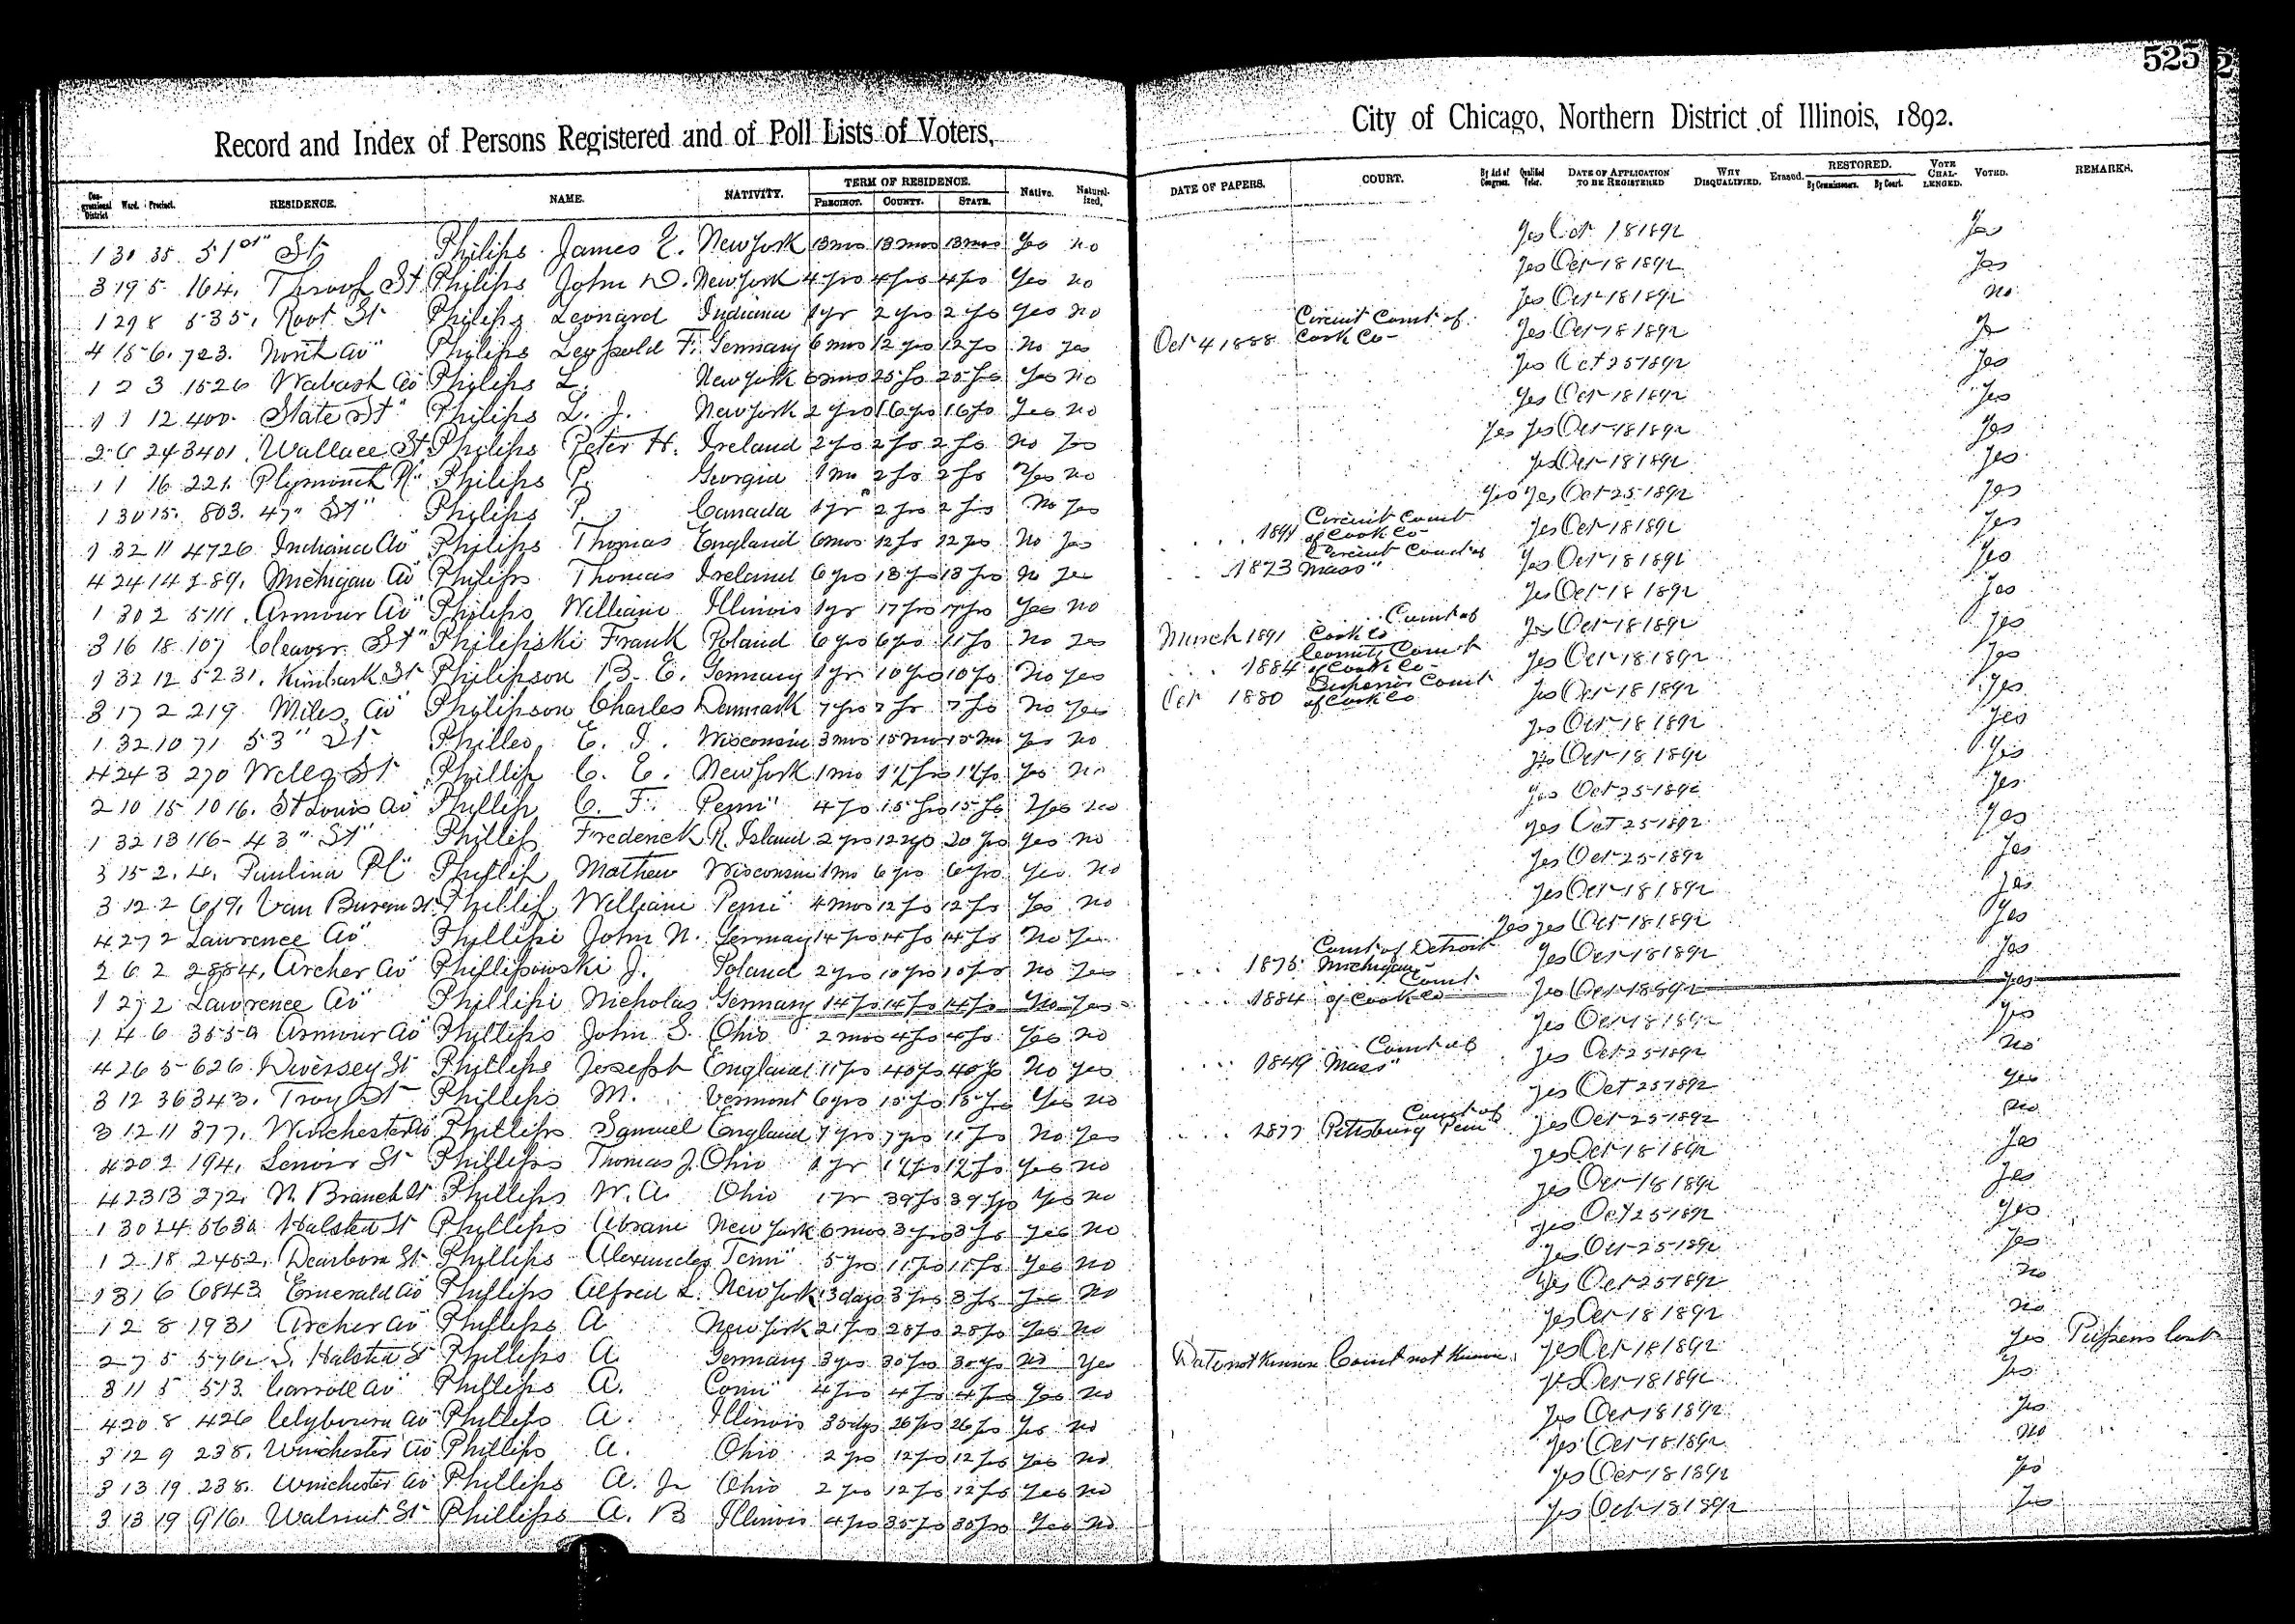 525
Record and Index of Persons Registered and of Poll Lists of Voters, City of Chicago, Northern District of Illinois, 1892.
Congressional District Ward. Precinct. RESIDENCE. NAME. NATIVITY. TERM OF RESIDENCE. PRECINCT. COUNTY. STATE. Native. Naturalized. DATE OF PAPERS. COURT. By Act of Congress. Qualified Voter. DATE OF APPLICATION TO BE REGISTERED WHY DISQUALIFIED. Erased. RESTORED. By Commissioners. By Court. VOTE CHALLENGED. VOTED. REMARKS.
1 30 35 51st St Philips James E. New York 13 mos 13 mos 13 mos Yes no Yes Oct 18 1892 Yes
3 19 5 164. Throop St Philips John D. New York 4 yrs 4 yrs 4 yrs Yes no Yes Oct 18 1892 Yes
1 29 8 535. Root St Philips Leonard Indiana 1 yr 2 yrs 2 yrs Yes no Yes Oct 18 1892 no
4 15 6. 723. North Av Philips Leopold F. Germany 6 mos 12 yrs 12 yrs No yes Oct 4 1888 Circuit Court of Cook Co Yes Oct 18 1892 Yes
1 2 3 1526 Wabash Av Philips L. New York 6 mos 25 yrs 25 yrs Yes no Yes Oct 25 1892 Yes
1 1 12 400. State St Philips L. J. New York 2 yrs 16 yrs 16 yrs Yes no Yes Oct 18 1892 Yes
2 6 24 3401 Wallace St Philips Peter H. Ireland 2 yrs 2 yrs 2 yrs No Yes Yes Yes Oct 18 1892 Yes
1 1 16 221. Plymouth Pl Philips P. Georgia 1 mo 2 yrs 2 yrs Yes no Yes Oct 18 1892 Yes
1 30 15. 803. 47" St Philips P. Canada 1 yr 2 yrs 2 yrs No Yes Yes Yes Oct 25 1892 Yes
1 32 11 4726 Indiana Av Philips Thomas England 6 mos 12 yrs 12 yrs No Yes 1891 Circuit Court of Cook Co Yes Oct 18 1892 Yes
4 24 14 289. Michigan Av Philips Thomas Ireland 6 yrs 13 yrs 13 yrs No Yes 1873 Circuit Court of Mass" Yes Oct 18 1892 Yes
1 30 2 5111. Armour Av Philips William Illinois 1 yr 17 yrs 17 yrs Yes no Yes Oct 18 1892 Yes
3 16 18 107 Cleaver St Philipski Frank Poland 6 yrs 6 yrs 11 yrs No Yes March 1891 Court of Cook Co Yes Oct 18 1892 Yes
1 32 12 5231. Kimbark St Philipson B. E. Germany 1 yr 10 yrs 10 yrs No Yes 1884 County Court of Cook Co Yes Oct 18 1892 Yes
3 17 2 219 Miles Av Philipson Charles Denmark 7 yrs 7 yrs 7 yrs No Yes Oct 1880 Superior Court of Cook Co Yes Oct 18 1892 Yes
1 32 10 71 53" St Philleo E. I. Wisconsin 3 mos 15 mos 15 mos Yes no Yes Oct 18 1892 Yes
4 24 3 270 Wells St Phillip C. E. New York 1 mo Yes no Yes Oct 18 1892 Yes
2 10 15 1016. St Louis Av Phillip C. F. Penn" 4 yrs 15 yrs 15 yrs Yes no Yes Oct 25 1892 Yes
1 32 13 116 43" St Phillip Frederick R. Island 2 yrs 12 yrs 20 yrs Yes no Yes Oct 25 1892 Yes
3 15 2. 4. Paulina Pl Phillip Mathew Wisconsin 1 mo 6 yrs 6 yrs Yes No Yes Oct 25 1892 Yes
3 12 2 619. Van Buren St Phillip William Penn 4 mos 12 yrs 12 yrs Yes no Yes Oct 18 1892 Yes
4 27 2 Lawrence Av Phillipi John N. Germany 14 yrs 14 yrs 14 yrs No Yes Yes Yes Oct 18 1892 Yes
2 6 2 2884. Archer Av Phillipowski J. Poland 2 yrs 10 yrs 10 yrs No Yes 1875 Court of Detroit Michigan Yes Oct 18 1892 Yes
1 27 2 Lawrence Av Phillipi Nicholas Germany 14 yrs 14 yrs 14 yrs No Yes 1884 Court of Cook Co Yes Oct 18 1892 Yes
1 4 6 3559 Armour Av Phillips John S. Ohio 2 mos 4 yrs 4 yrs Yes no Yes Oct 18 1892 Yes
4 26 5 626 Diversey St Phillips Joseph England 11 yrs 40 yrs 40 yrs No Yes 1849 Court of Mass" Yes Oct 25 1892 no
3 12 36 343. Troy St Phillips M. Vermont 6 yrs 15 yrs 15 yrs Yes no Yes Oct 25 1892 Yes
3 12 11 377. Winchester Av Phillips Samuel England 7 yrs 11 yrs No Yes 1877 Court of Pittsburg Penn Yes Oct 25 1892 no
4 20 2 194. Lenoir St Phillips Thomas J. Ohio 1 yr Yes no Yes Oct 18 1892 Yes
4 23 13 272. N. Branch St Phillips W. A Ohio 1 yr 39 yrs 39 yrs Yes no Yes Oct 18 1892 Yes
1 30 24 5630 Halsted St Phillips Abram New York 6 mos 3 yrs 3 yrs Yes no Yes Oct 25 1892 Yes
1 2 18 2452. Dearborn St Phillips Alexander Tenn" 5 yrs 11 yrs 11 yrs Yes no Yes Oct 25 1892 Yes
1 31 6 6843 Emerald Av Phillips Alfred L. New York 13 days 3 yrs 3 yrs Yes No Yes Oct 25 1892 no
1 2 8 1931 Archer Av Phillips A New York 21 yrs 28 yrs 28 yrs Yes no Yes Oct 18 1892 no
2 7 5 576 S. Halsted St Phillips A. Germany 3 yrs 30 yrs 30 yrs No Yes Date not Known Court not Known Yes Oct 18 1892 Yes
3 11 5 513 Carroll Av Phillips A. Conn" 4 yrs 4 yrs 4 yrs Yes no Yes Oct 18 1892 Yes
4 20 8 426 Clybourn Av Phillips A. Illinois 35 dys 26 yrs 26 yrs Yes no Yes Oct 18 1892 Yes
3 12 9 238. Winchester Av Phillips A. Ohio 2 yrs 12 yrs 12 yrs Yes no Yes Oct 18 1892 no
3 13 19 238. Winchester Av Phillips A. Jr Ohio 2 yrs 12 yrs 12 yrs Yes no Yes Oct 18 1892 Yes
3 13 19 916. Walnut St Phillips A. B Illinois 4 yrs 35 yrs Yes no Yes Oct 18 1892 Yes